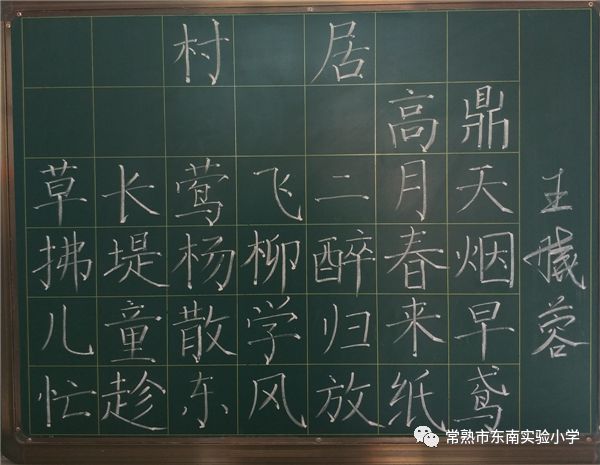 村居
高鼎
草长莺飞二月天
拂堤杨柳醉春烟
儿童散学归来早
忙趁东风放纸鸢
王 蓉
常熟市东南实验小学